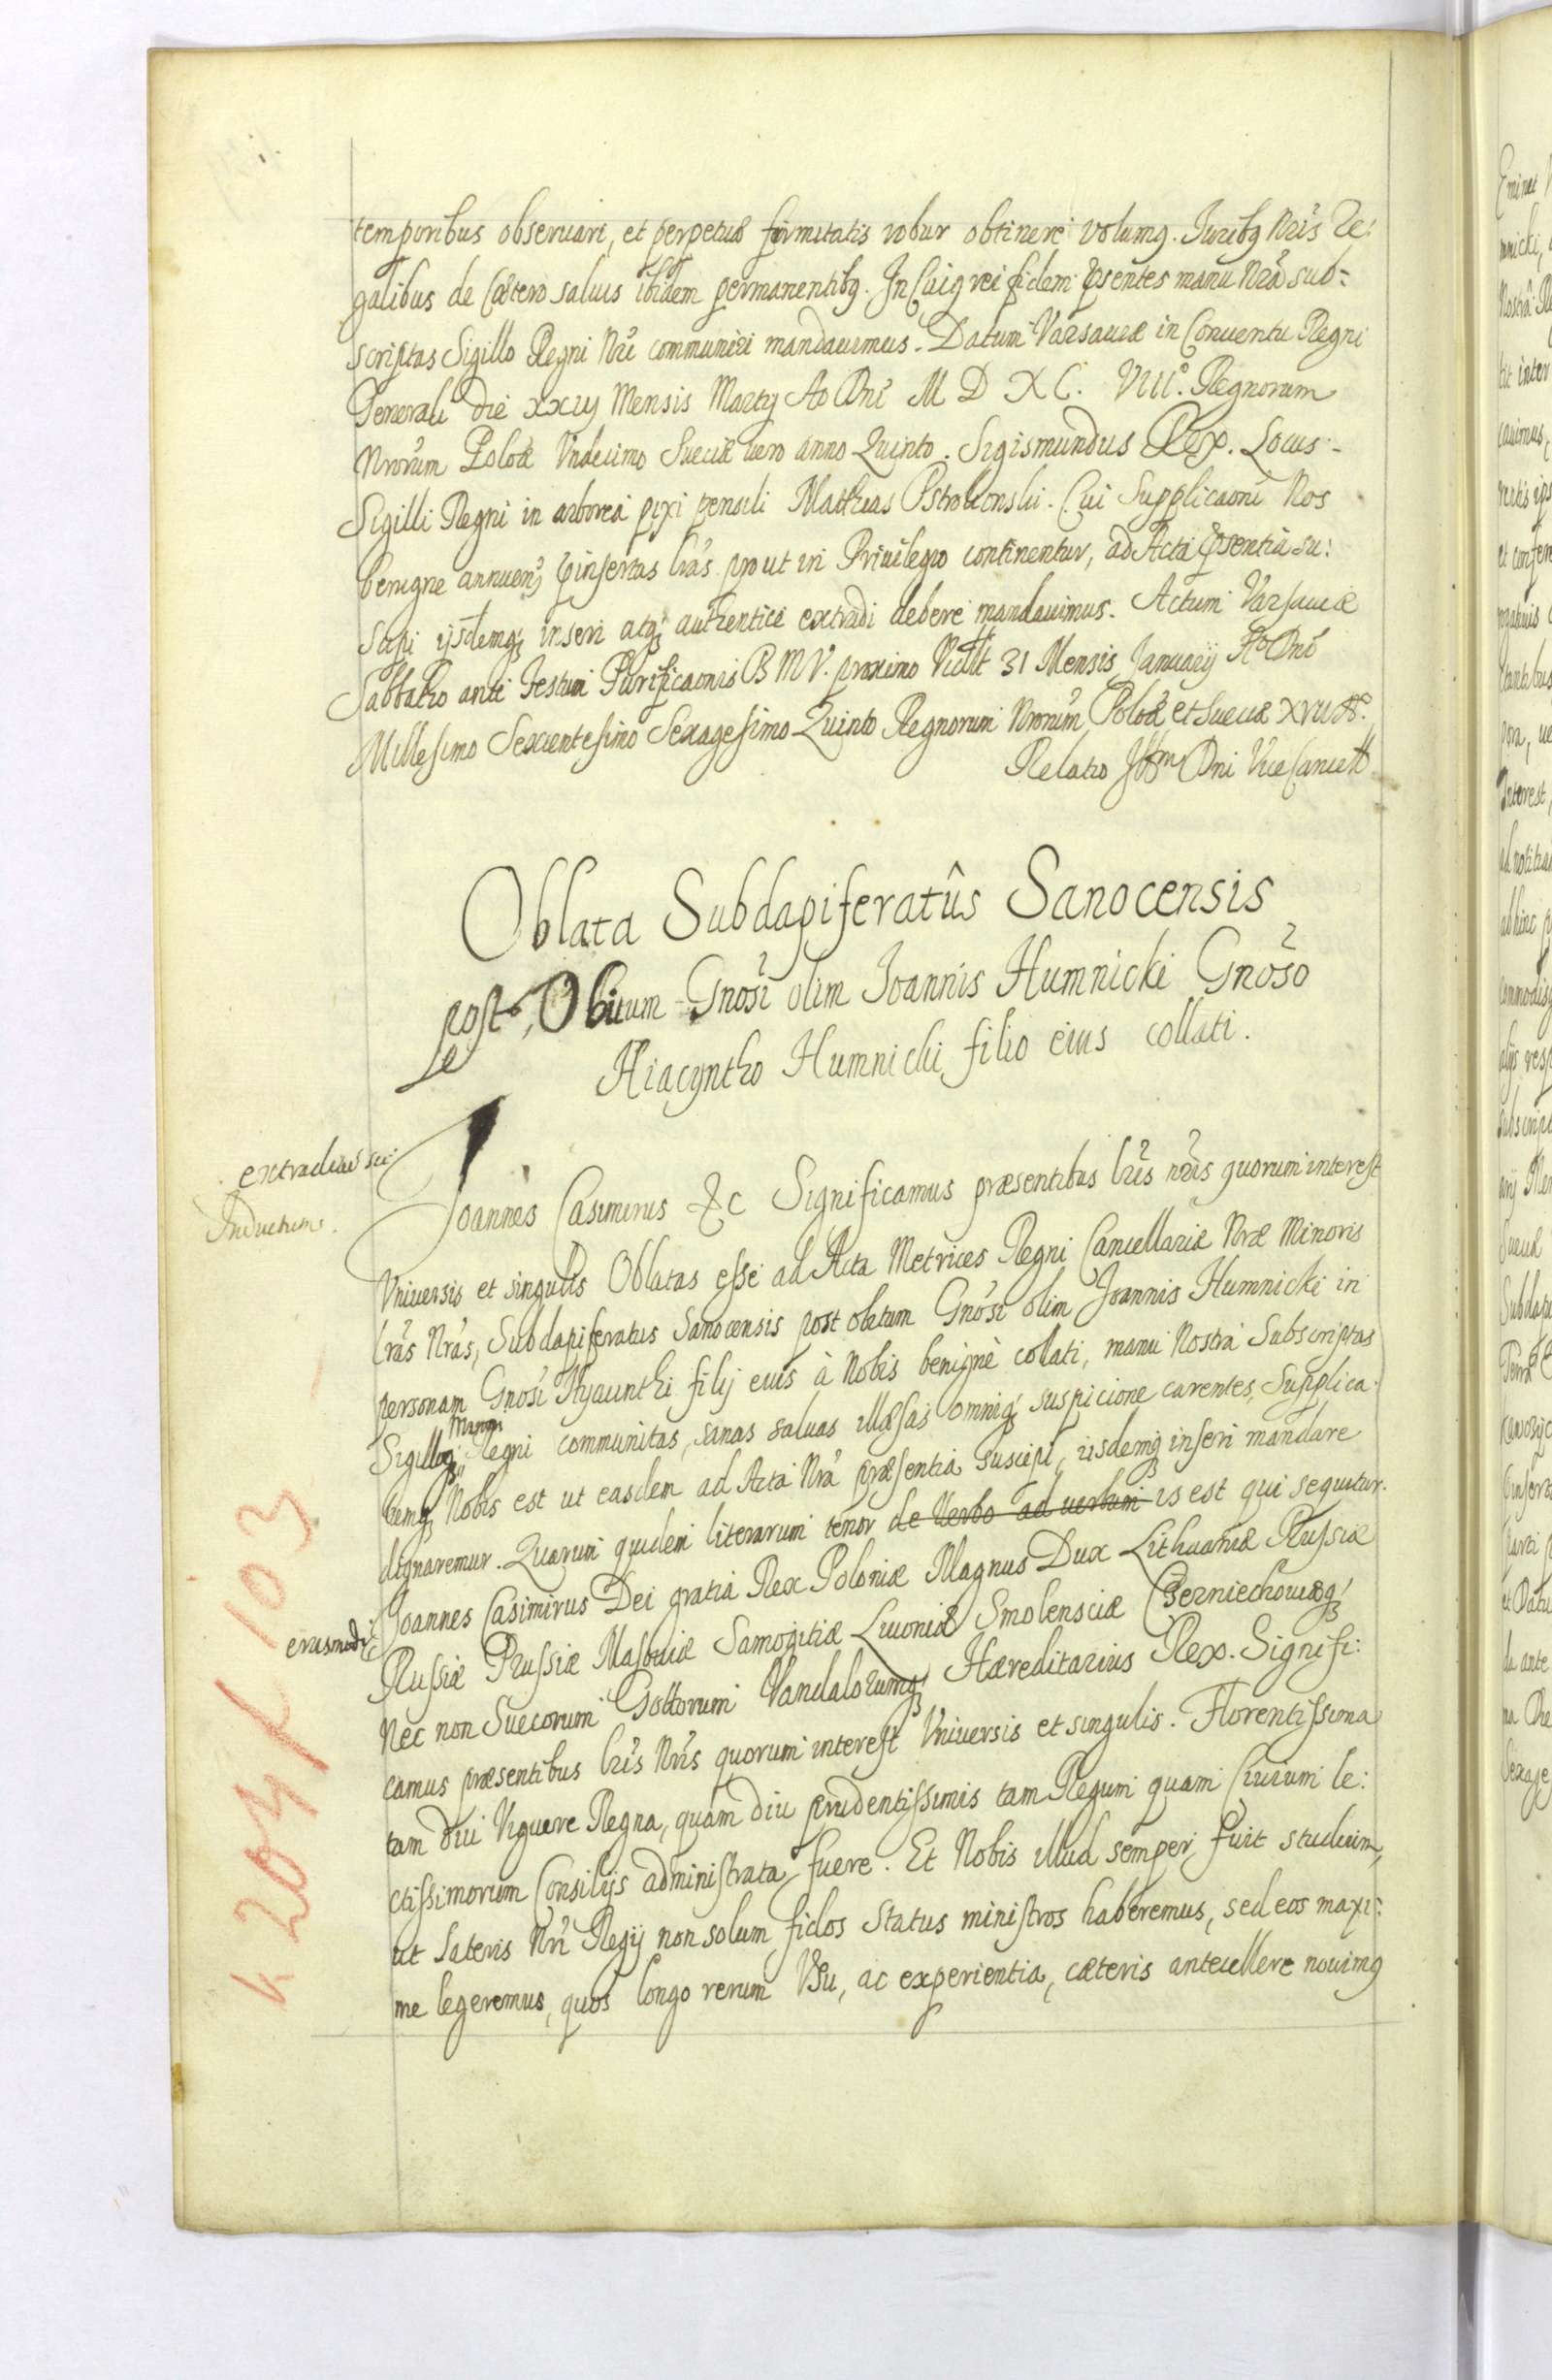 temporibus obseruari, et perpetuæ firmitatis robur obtinere volumq. Juribq Nrĩs Re:
galibus de Cætero saluis ibidem permanentibq. In Cuiq rei fidem pñsentes manu Nrã sub=
scriptas Sigillo Regni Nrĩ communiri mandauimus. Datum Varsauiæ in Conuentu Regni
Generali die xxiij Mensis Martij Ao Dnĩ M D X C. VIII.º Regnorum
Nrorũm Polõæ Vndecimo Sueciæ uero anno Quinto. Sigismundus Rex. Locus
Sigilli Regni in arborea pixi pensili Mathias Pstrokonski. Cui Supplicaõni Nos
benigne annuen̄ pinsertas lrãs prout in Priuilegio continentur, ad Acta pñsentia su:
scipi ijsdemq inseri atq authentice extradi debere mandauimus. Actum Varsauiæ
Sabbatho ante Festum Purificaõnis B M V. proximo Vidlt 31 Mensis Januarij Aº Dnĩ
Millesimo Sexcentesimo Sexagesimo Quinto Regnorum Nrorũm Polõæ et Sueciæ XVII Aº.
Relatio Illm Dni ViceCancell
Oblata Subdapiferatûs Sanocensis
post Obitum Gnõsi olim Joannis Humnicki Gnõso
Hiacyntho Humnicki filio eius collati.
extradictus
Inductum.
Joannes Casimirus &c Significamus præsentibus lrĩs nrĩs quorum interest
Vniuersis et singulis Oblatas esse ad Acta Metrices Regni Cancellariæ Nræ Minoris
lrãs Nrãs, Subdapiferatus Sanocensis post obitum Gnõsi olim Joannis Humnicki in
personam Gnõsi Hyacinthi filij euis à Nobis benignè collati, manu Nostra Subscriptas
Minori
Sigilloq Regni communitas, sanas saluas illæsas omniq suspicione carentes, Supplica
tumq Nobis est ut easdem ad Acta Nrã præsentia suscipi, iisdemq inseri mandare
dignaremur. Quarum quidem literarum tenor de Verbo ad uerbum is est qui sequitur.
eiusmodi
Joannes Casimirus Dei gratia Rex Poloniæ Magnus Dux Lithuaniæ Russiæ
Russiæ Prussiæ Masouiæ Samogitiæ Liuoniæ Smolensciæ Czerniechouiæq
Nec non Suecorum Gottorum Vandalorumq Hæreditarius Rex. Signifi:
camus præsentibus lrĩs Nrĩs quorum interest Vniuersis et singulis. Florentissima
tam diu Viguere Regna, quam diu prudentissimis tam Regum quam Ciuium le:
ctissimorum Consilijs administrata fuere. Et Nobis illud semper fuit studium,
ut Lateris Nrĩ Regij non solum fidos Status ministros haberemus, sed eos maxi:
me legeremus, quos longo rerum Vsu, ac experientia, cæteris antecellere nouimq
k 204 / 103